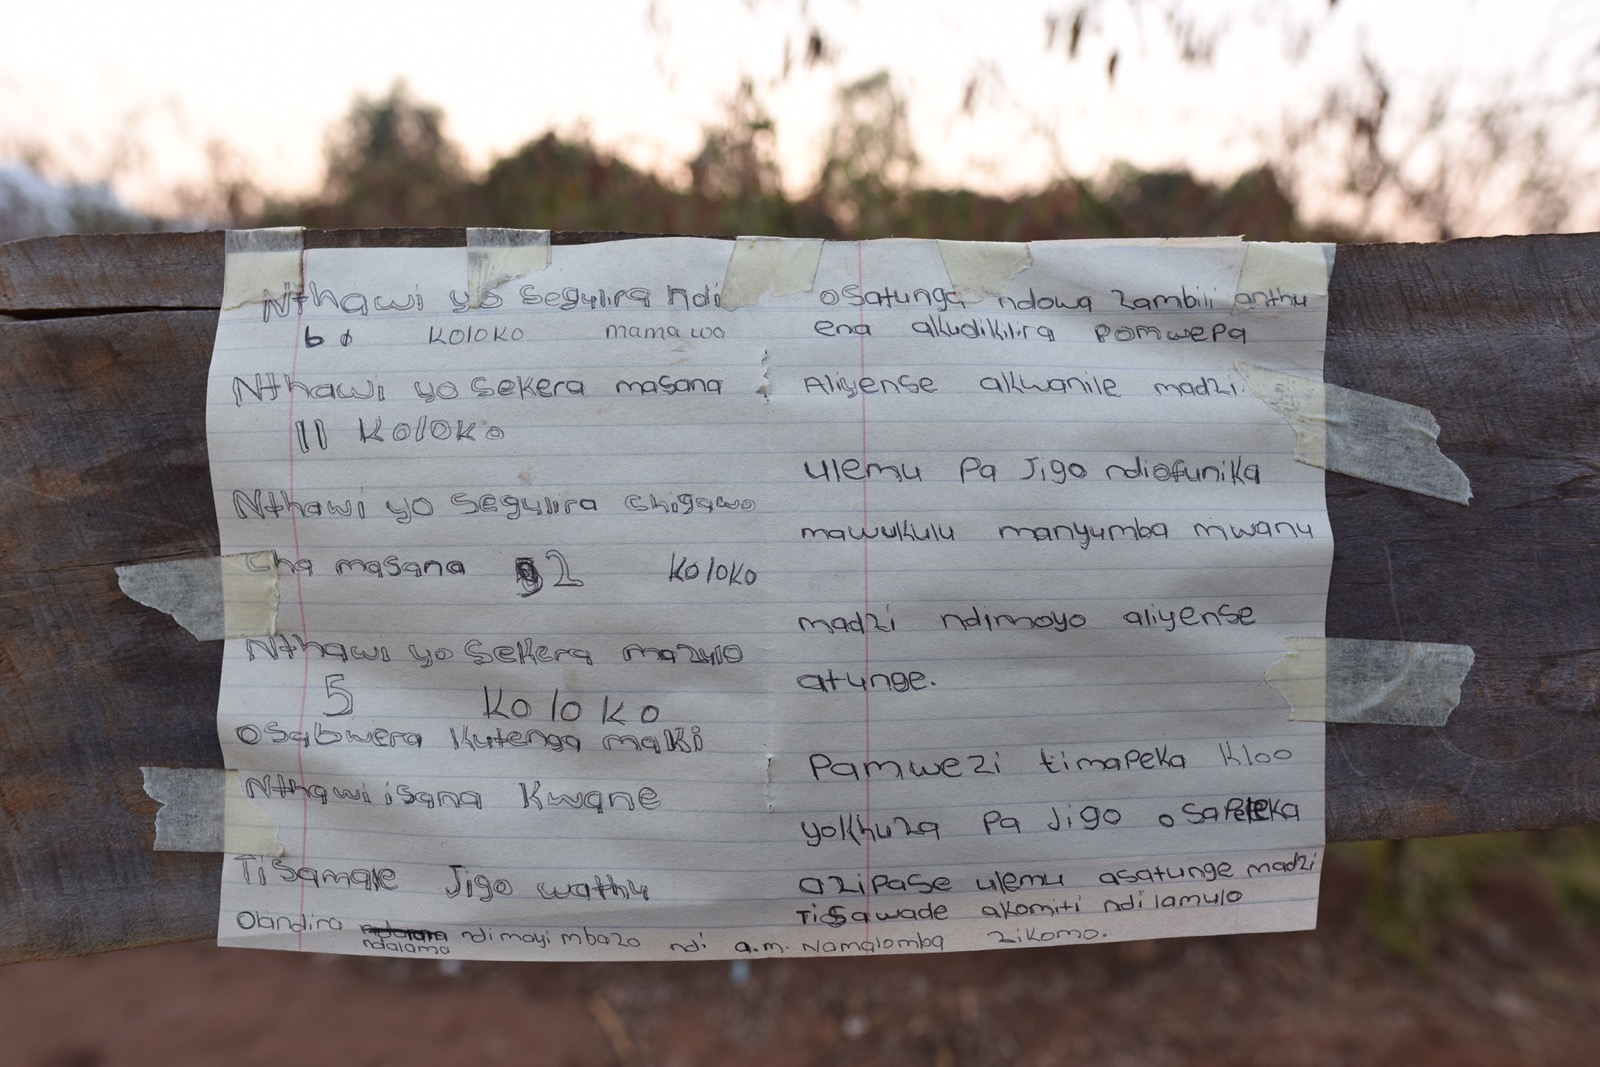 Nthawi yo Segulira ndi
6 koloko mamawa
Nthawi yo sekera masana
11 Koloko
Nthawi yo Segulira Chigawo
Cha masana 2 Koloko
Nthawi yo Sekera mazulo
5 Koloko
osabwera Kutenga maki
Nthawi isana Kwane
Tisamale Jigo wathu
Olandira ndalama ndi mayi mbazo ndi a.m. Namalomba zikomo.
osatunga ndowa zambili anthu
ena akudikilira pomwepa
Aliyense akwanile madzi.
ulemu Pa Jigo ndiofunika
mawukulu manyumba mwanu
madzi ndimoyo aliyense
atunge.
Pamwezi timapeka Kloo
yokhuza Pa Jigo osapeleka
azipase ulemu asatunge madzi
Tisawade akomiti ndi lamulo